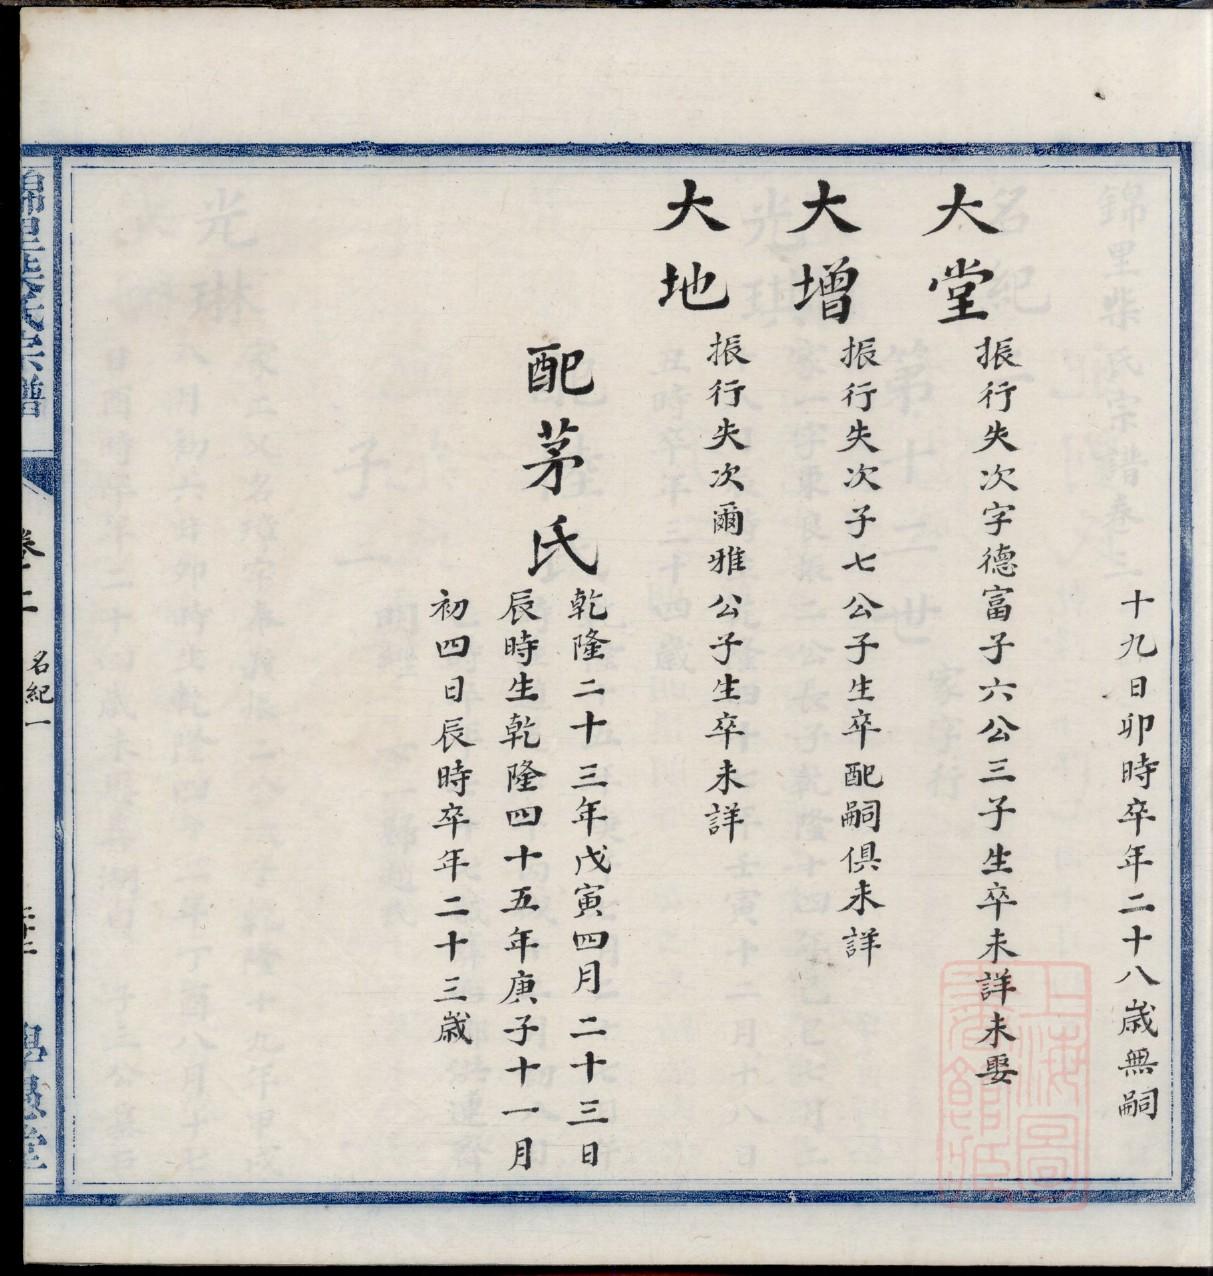 十九日卯時卒年二十八歲無嗣
大堂
振行失次字德富子六公三子生卒未詳未娶
大增
振行失次子七公子生卒配嗣俱未詳
大地
振行失次爾雅公子生卒未詳
配茅氏
乾隆二十三年戊寅四月二十三日
辰時生乾隆四十五年庚子十一月
初四日辰時卒年二十三歲
錦里柴氏宗譜
名紀一
上海圖書館藏